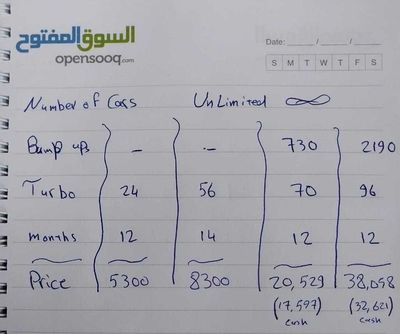 السوق المفتوح
opensooq.com
Date: ____/____/____
S M T W T F S
Number of Cars UnLimited ∞
Bump ups - - 730 2190
Turbo 24 56 70 96
months 12 14 12 12
Price 5300 8300 20,529 38,058
(17,597) (32,621)
cash cash